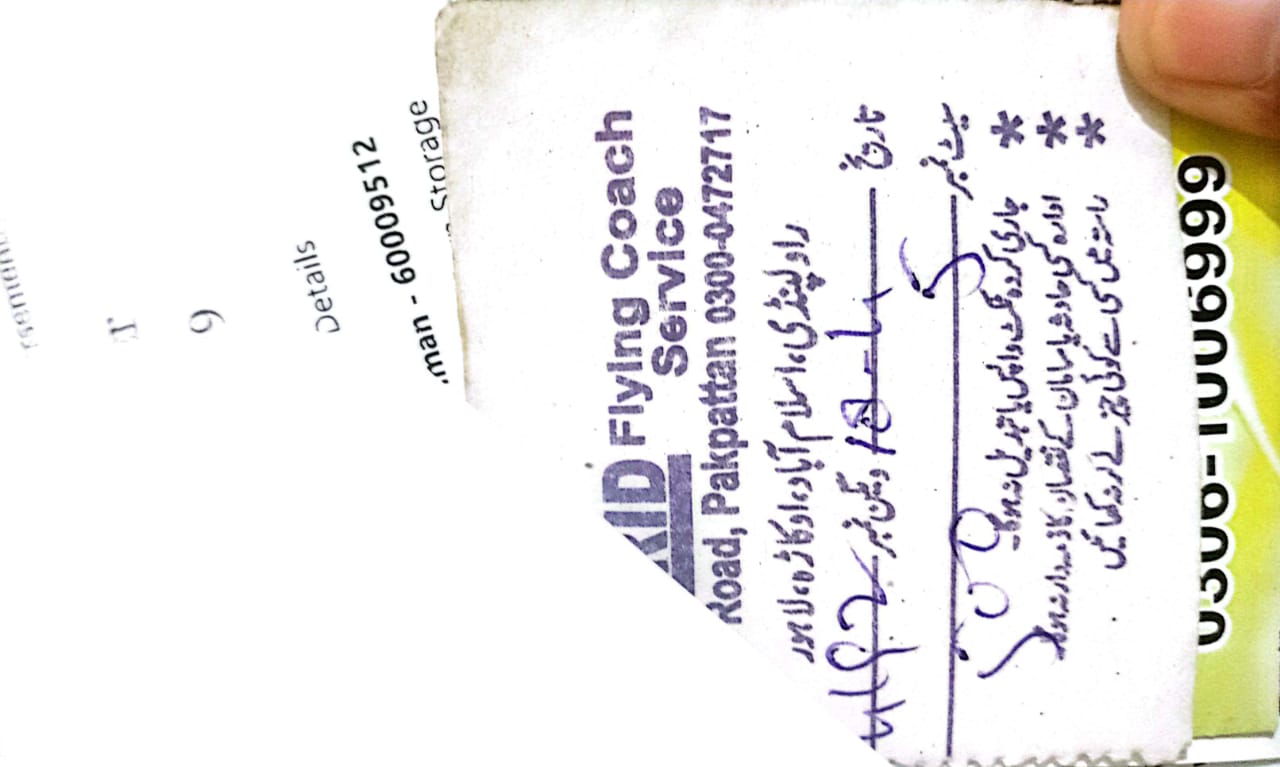 Details
man - 60009512
Storage
KID Flying Coach
Service
Road, Pakpattan 0300-0472717
راولپنڈی، اسلام آباد، اوکاڑہ، لاہور
تاریخ 18-1 ویگن نمبر
سیٹ نمبر 5
* جاری کردہ ٹکٹ واپس یا تبدیل نہ ہوگا۔
* ادارہ کسی حادثہ یا سامان کے نقصان کا ذمہ دار نہ ہوگا
* راستہ میں کسی سے کوئی چیز لے کر نہ کھائیں
0306-1006999